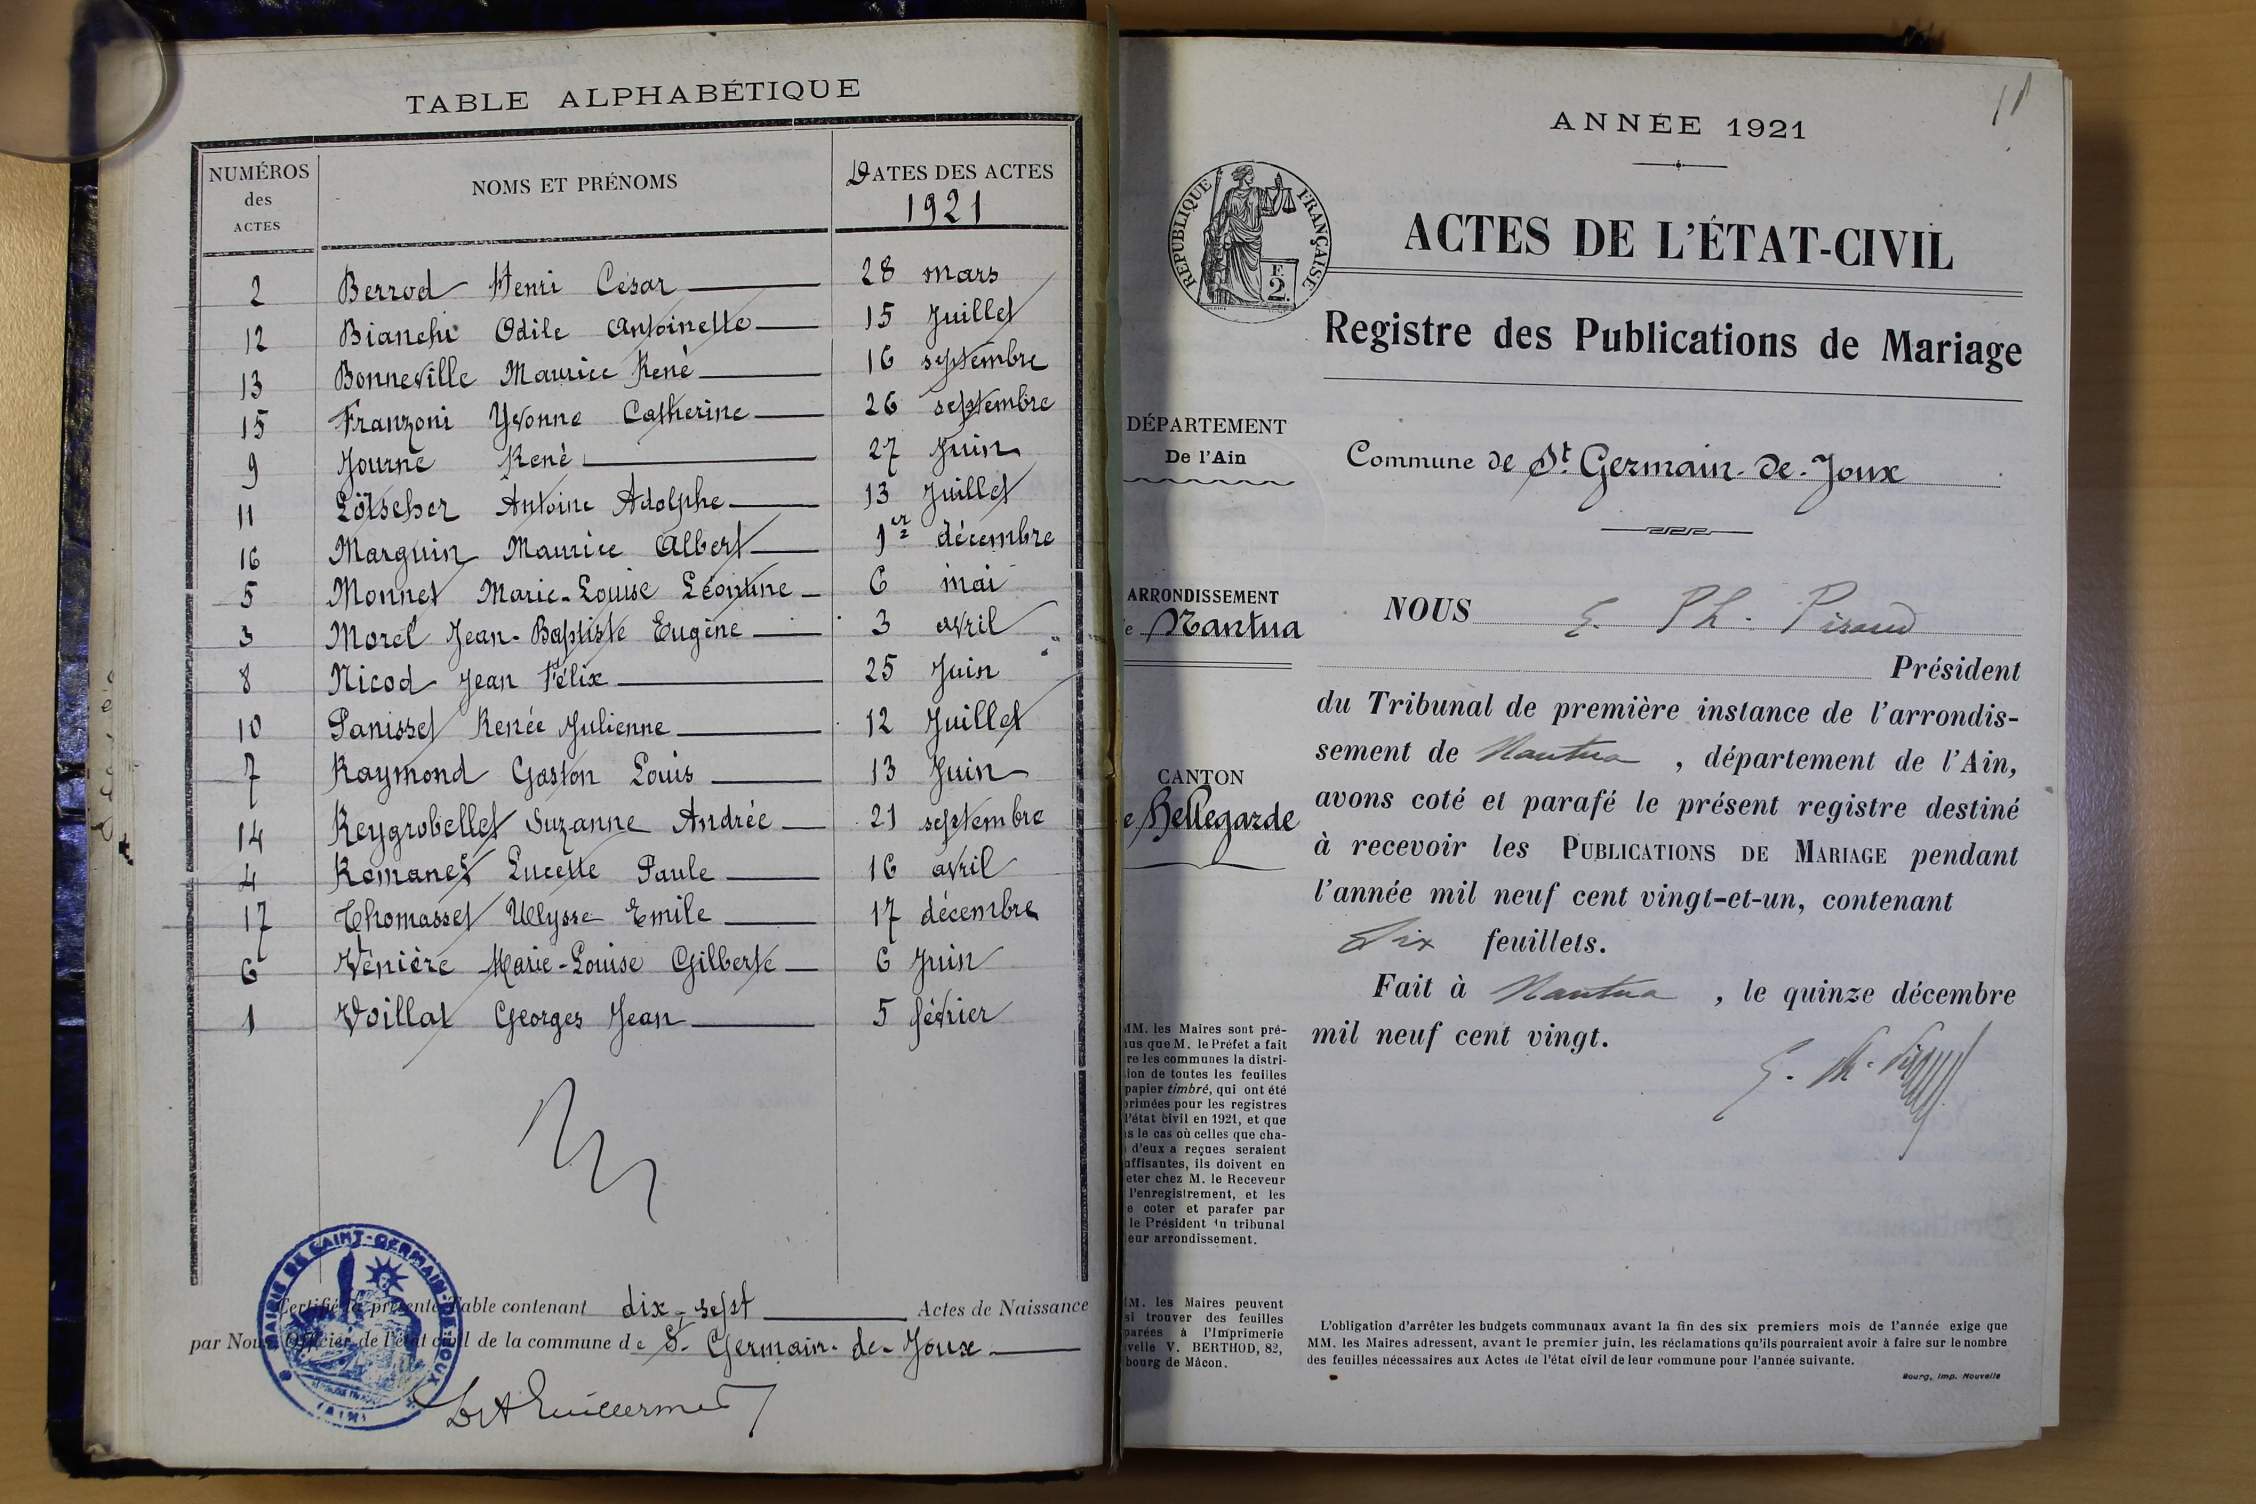 TABLE ALPHABÉTIQUE
NUMÉROS des ACTES
NOMS ET PRÉNOMS
DATES DES ACTES
1921
2 Berrod Henri César 28 mars
12 Bianchi Odile Antoinette 15 Juillet
13 Bonneville Maurice René 16 septembre
15 Franzoni Yvonne Catherine 26 septembre
9 Journe René 27 Juin
11 Lötscher Antoine Adolphe 13 Juillet
16 Marguin Maurice Albert 1er décembre
5 Monnet Marie-Louise Léontine 6 mai
3 Morel Jean-Baptiste Eugène 3 avril
8 Nicod Jean Félix 25 Juin
10 Panisset Renée Julienne 12 Juillet
7 Raymond Gaston Louis 13 Juin
14 Reygrobellet Suzanne Andrée 21 septembre
4 Romanet Lucette Paule 16 avril
17 Thomasset Ulysse Emile 17 décembre
6 Vènière Marie-Louise Gilberte 6 Juin
1 Voillat Georges Jean 5 février
Certifié la présente Table contenant dix-sept Actes de Naissance
par Nous, Officier de l'état civil de la commune de St Germain-de-Joux
MAIRIE DE SAINT-GERMAIN-DE-JOUX
(AIN)
ANNÉE 1921
RÉPUBLIQUE FRANÇAISE
F. 2.
ACTES DE L'ÉTAT-CIVIL
Registre des Publications de Mariage
DÉPARTEMENT
De l'Ain
Commune de St Germain-de-Joux
ARRONDISSEMENT
e Nantua
CANTON
e Bellegarde
NOUS E. Ph. Piraud
Président
du Tribunal de première instance de l'arrondis-
sement de Nantua, département de l'Ain,
avons coté et parafé le présent registre destiné
à recevoir les PUBLICATIONS DE MARIAGE pendant
l'année mil neuf cent vingt-et-un, contenant
Six feuillets.
Fait à Nantua, le quinze décembre
mil neuf cent vingt.
MM. les Maires sont pré-
us que M. le Préfet a fait
re les communes la distri-
ion de toutes les feuilles
papier timbré, qui ont été
primées pour les registres
l'état civil en 1921, et que
s le cas où celles que cha-
d'eux a reçues seraient
uffisantes, ils doivent en
eter chez M. le Receveur
l'enregistrement, et les
e coter et parafer par
le Président du tribunal
eur arrondissement.
MM. les Maires peuvent
si trouver des feuilles
parées à l'Imprimerie
velle V. BERTHOD, 82,
bourg de Mâcon.
L'obligation d'arrêter les budgets communaux avant la fin des six premiers mois de l'année exige que
MM. les Maires adressent, avant le premier juin, les réclamations qu'ils pourraient avoir à faire sur le nombre
des feuilles nécessaires aux Actes de l'état civil de leur commune pour l'année suivante.
Bourg, Imp. Nouvelle